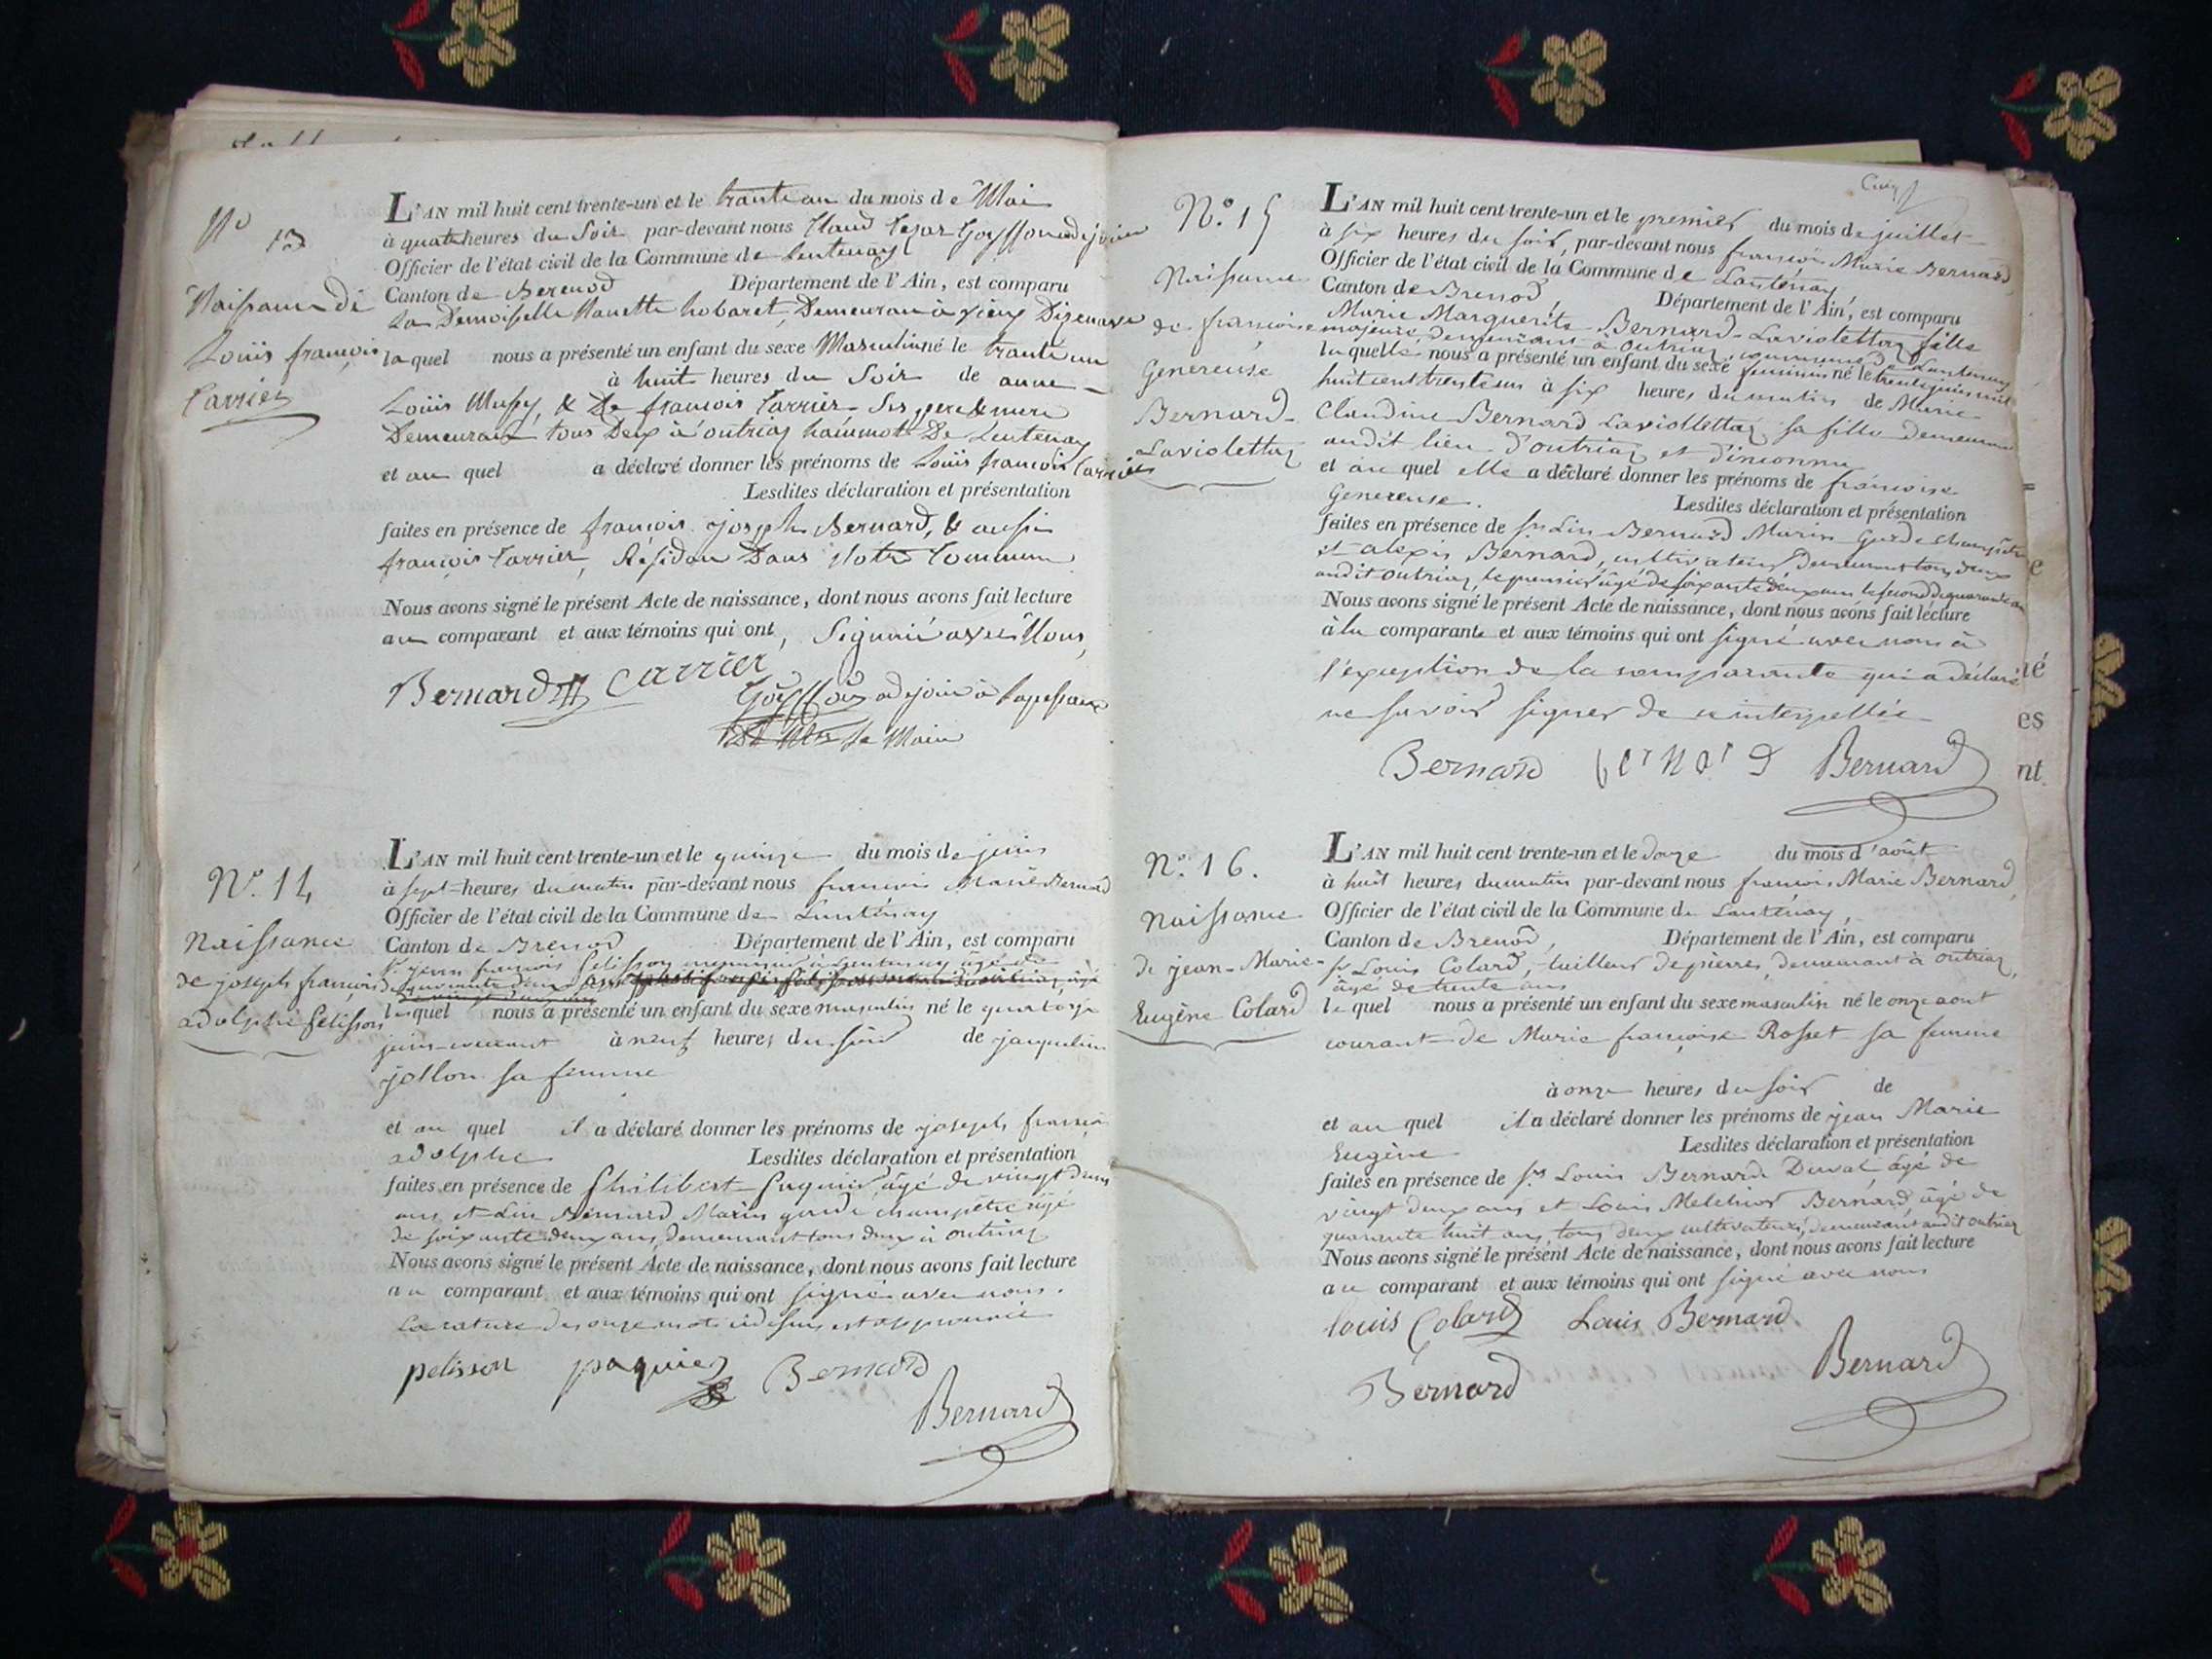 N° 13
Naissance de
Louis françois
Carrier
L'AN mil huit cent trente-un et le trante un du mois de Mai
à quatre heures du Soir par-devant nous Claud Cezar Goyffon adejoin
Officier de l'état civil de la Commune de Lentenay
Canton de Berenod Département de l'Ain, est comparu
La Demoiselle Nanette hobaret, Demeuran à vieux Dizenave
laquel nous a présenté un enfant du sexe Masculin né le trante un
à huit heures du Soir de anne
Louis Mussy, & De françois Carrier Ses pere & mere
Demeurant tous Deux à outriaz hammot De Lentenay
et au quel a déclaré donner les prénoms de Louis francois Carrier
Lesdites déclaration et présentation
faites en présence de françois joseph Bernard, & aussi
françois Carrier, Résidan Dans Notre Commune
Nous avons signé le présent Acte de naissance, dont nous avons fait lecture
au comparant et aux témoins qui ont, Signé avec Nous,
Bernard Carrier
Goyffon adejoin à
le Maire
N°. 14
Naissance
de joseph françois
adolphe Pelisson
L'AN mil huit cent trente-un et le quinze du mois de juin
à sept heures du matin par-devant nous francois Marie Bernard
Officier de l'état civil de la Commune de Lantenay
Canton de Brenod Département de l'Ain, est comparu
Sr. jean françois Pelisson menuisier à Lantenay âgé de
quarante deux ans
lequel nous a présenté un enfant du sexe masculin né le quatorze
juin courant à neuf heures du soir de jacqueline
jollon sa femme
et au quel il a déclaré donner les prénoms de joseph françois
adolphe Lesdites déclaration et présentation
faites en présence de Philibert Paquier, âgé de vingt deux
ans et Lin Bernard Marin garde champêtre âgé
de soixante deux ans, demeurant tous deux à outriaz
Nous avons signé le présent Acte de naissance, dont nous avons fait lecture
au comparant et aux témoins qui ont signé avec nous.
La rature des onze mots ci dessus est approuvée
pelisson paquier Bernard
Bernard
N°. 15
Naissance
de françoise
Genereuse
Bernard
Laviolettaz
L'AN mil huit cent trente-un et le premier du mois de juillet
à six heures du soir, par-devant nous françois Marie Bernard,
Officier de l'état civil de la Commune de Lantenay,
Canton de Brenod, Département de l'Ain, est comparu
Marie Marguerite Bernard-Laviolettaz fille
majeure, demeurant à Outriaz, commune de Lantenay
laquelle nous a présenté un enfant du sexe feminin né le trente juin mil
huit cent trente un à six heures du matin de Marie
Claudine Bernard Laviollettaz sa fille demeurant
audit lieu d'outriaz et d'inconnu
et au quel elle a déclaré donner les prénoms de françoise
Genereuse. Lesdites déclaration et présentation
faites en présence de srs Lin Bernard Marin Garde champêtre
et alexis Bernard, cultivateur demeurant tous deux
audit outriaz le premier âgé de soixante deux ans le second de quarante ans
Nous avons signé le présent Acte de naissance, dont nous avons fait lecture
à la comparante et aux témoins qui ont signé avec nous à
l'exception de la comparante qui a déclaré
ne savoir signer de ce interpellée
Bernard bernard Bernard
N°. 16.
Naissance
de jean-Marie-
Eugène Colard
L'AN mil huit cent trente-un et le douze du mois d'août
à huit heures du matin par-devant nous francois Marie Bernard,
Officier de l'état civil de la Commune de Lantenay,
Canton de Brenod, Département de l'Ain, est comparu
sr Louis Colard, tailleur de pierres, demeurant à outriaz,
âgé de trente ans
lequel nous a présenté un enfant du sexe masculin né le onze aout
courant de Marie françoise Rosset sa femme
à onze heures du soir de
et au quel il a déclaré donner les prénoms de jean Marie
Eugène Lesdites déclaration et présentation
faites en présence de srs Louis Bernard Duval âgé de
vingt deux ans et Louis Melchior Bernard, âgé de
quarante huit ans, tous deux cultivateurs, demeurant audit outriaz
Nous avons signé le présent Acte de naissance, dont nous avons fait lecture
au comparant et aux témoins qui ont signé avec nous
louis Colard Louis Bernard
Bernard Bernard